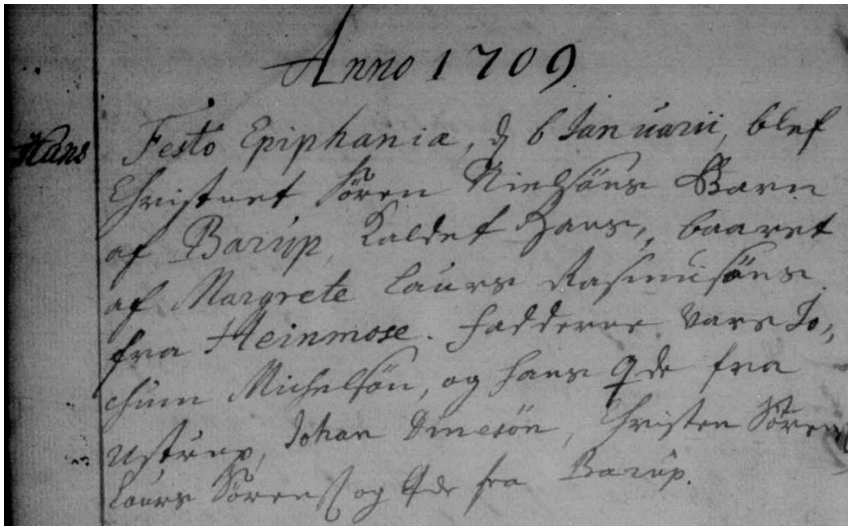 Anno 1709
Hans
Festo Epiphaniæ, d 6 Januarii, blef
Christnet Sören Nielsöns Barn
af Barup, kaldet Hans, baaret
af Margrete Laurs Rasmusöns
fra Heinmose. Fadderne vare Jo,,
chum Michelsön, og hans Qde fra
Ustrup, Johan Dinesön, Christen Sörens
Laurs Sörens og Qde fra Barup.